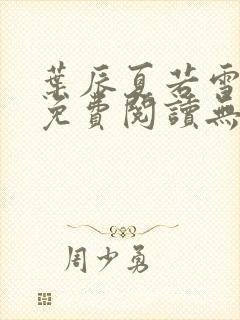 葉辰夏若雪
免費閱讀無
周少勇